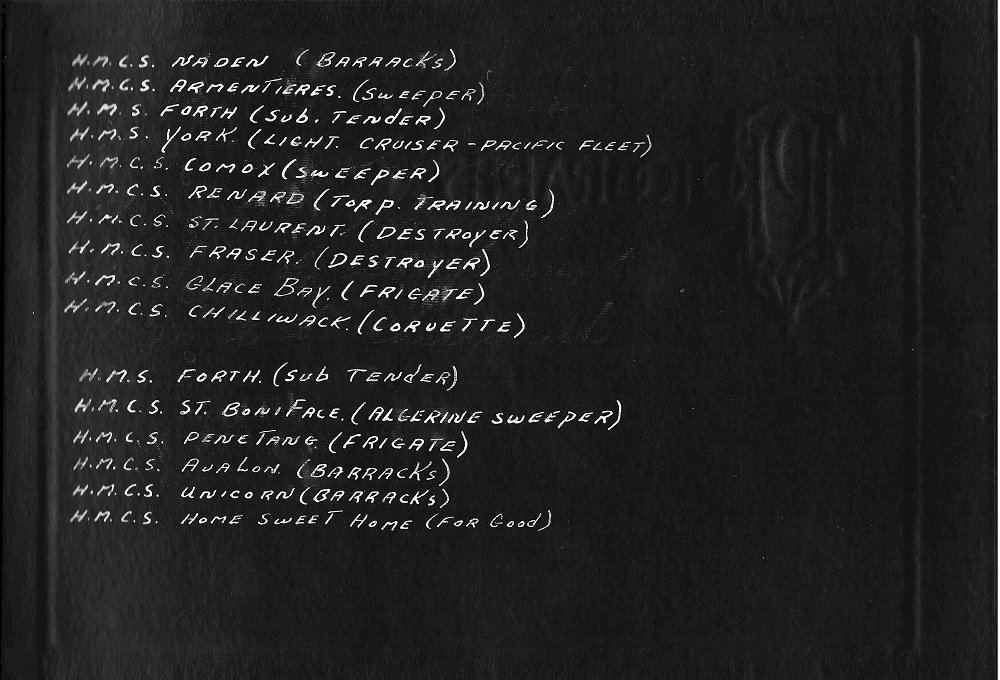 H.M.C.S. NADEN (BARRACKS)
H.M.C.S. ARMENTIERES. (SWEEPER)
H.M.S. FORTH (SUB. TENDER)
H.M.S. YORK. (LIGHT. CRUISER - PACIFIC FLEET)
H.M.C.S. COMOX (SWEEPER)
H.M.C.S. RENARD (TORP. TRAINING)
H.M.C.S. ST. LAURENT. (DESTROYER)
H.M.C.S. FRASER. (DESTROYER)
H.M.C.S. GLACE BAY. (FRIGATE)
H.M.C.S. CHILLIWACK. (CORVETTE)
H.M.S. FORTH. (SUB TENDER)
H.M.C.S. ST. BONIFACE. (ALGERINE SWEEPER)
H.M.C.S. PENETANG (FRIGATE)
H.M.C.S. AVALON. (BARRACKS)
H.M.C.S. UNICORN (BARRACKS)
H.M.C.S. HOME SWEET HOME (FOR GOOD)